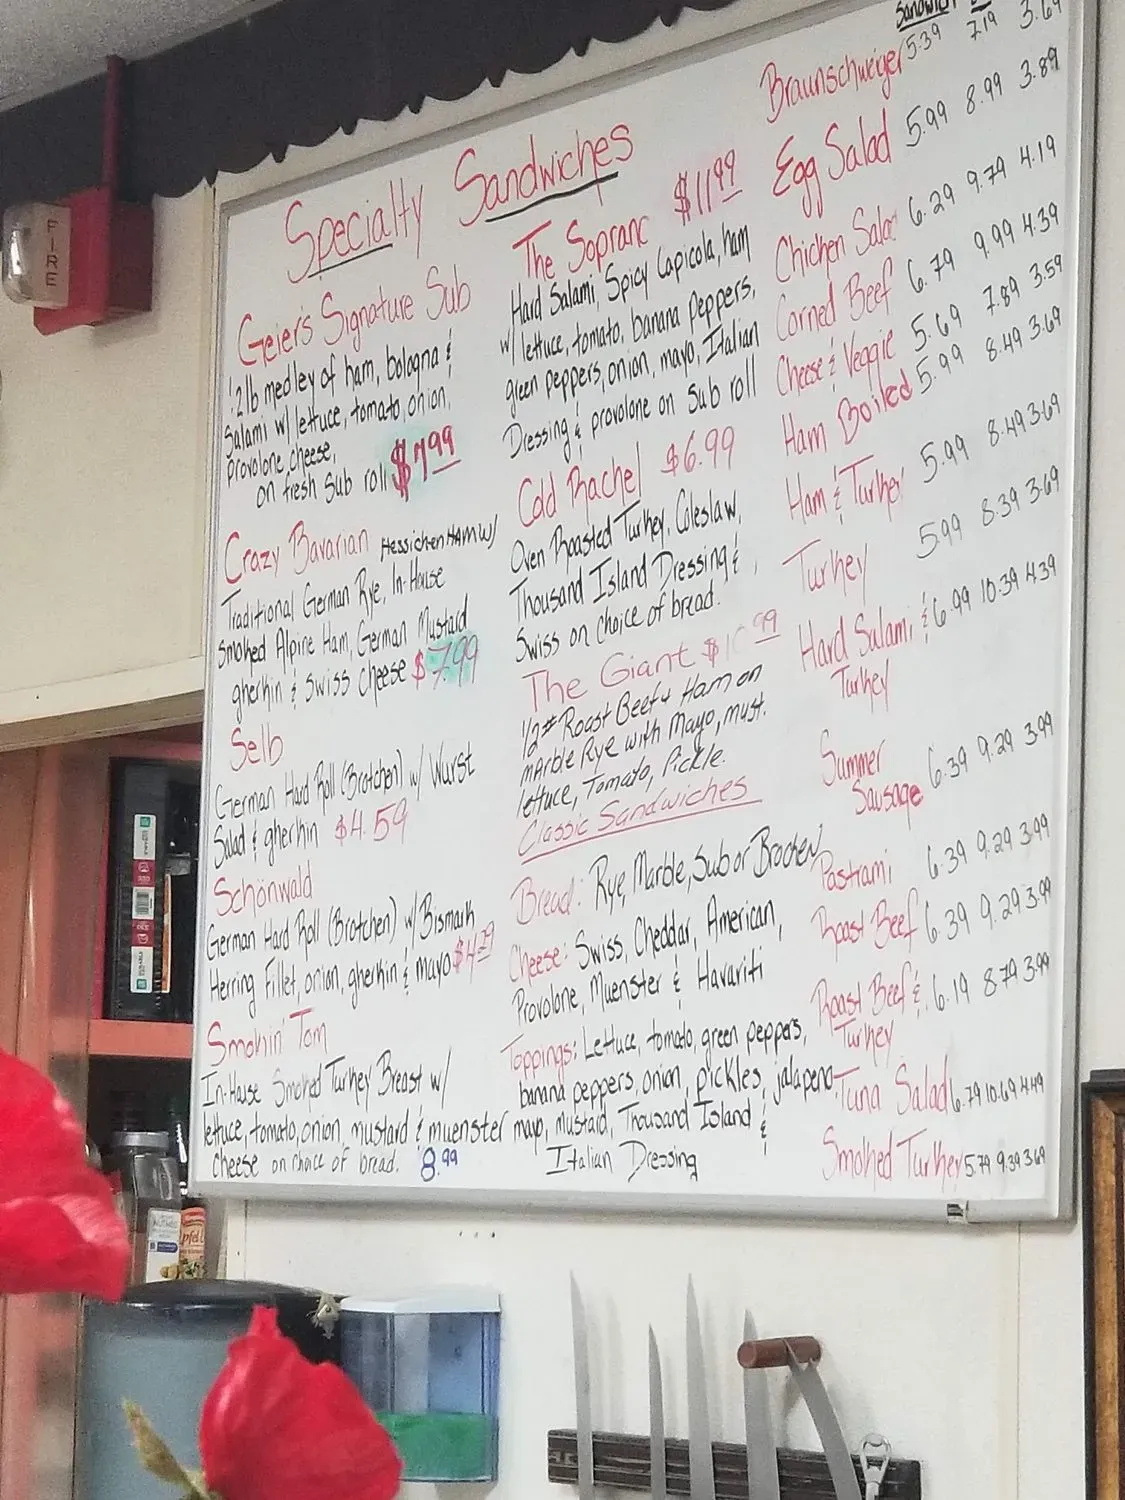 FIRE
Specialty Sandwiches
Geier's Signature Sub
1/2 lb medley of ham, bologna &
Salami w/ lettuce, tomato, onion,
provolone cheese,
on fresh Sub roll $7.99
Crazy Bavarian Hessichen HAM w/
Traditional German Rye, In-House
Smoked Alpine Ham, German Mustard
gherkin & swiss cheese $7.99
Selb
German Hard Roll (Brotchen) w/ Wurst
Salad & gherkin $4.59
Schönwald
German Hard Roll (Brotchen) w/ Bismark
Herring Fillet, onion, gherkin & mayo $4.79
Smokin' Tom
In-House Smoked Turkey Breast w/
lettuce, tomato, onion, mustard & muenster
cheese on choice of bread. 8.99
The Soprano $11.99
Hard Salami, Spicy Capicola, ham
w/ lettuce, tomato, banana peppers,
green peppers, onion, mayo, Italian
Dressing & provolone on Sub roll
Cold Rachel $6.99
Oven Roasted Turkey, Coleslaw,
Thousand Island Dressing &
Swiss on choice of bread.
The Giant $10.99
1/2# Roast Beef & Ham on
mArble Rye with Mayo, must.
lettuce, Tomato, Pickle.
Classic Sandwiches
Bread: Rye, Marble, Sub or Brochen
Cheese: Swiss, Cheddar, American,
Provolone, Muenster & Havariti
Toppings: Lettuce, tomato, green peppers,
banana peppers, onion, pickles, jalapeno
mayo, mustard, Thousand Island &
Italian Dressing
Sandwich
Braunschweiger 5.39 7.19 3.69
Egg Salad 5.99 8.99 3.89
Chicken Salad 6.29 9.79 4.19
Corned Beef 6.79 9.99 4.39
Cheese & Veggie 5.69 7.89 3.59
Ham Boiled 5.99 8.49 3.69
Ham & Turkey 5.99 8.49 3.69
Turkey 5.99 8.39 3.69
Hard Salami & 6.99 10.39 4.39
Turkey
Summer
Sausage 6.39 9.29 3.99
Pastrami 6.39 9.29 3.99
Roast Beef 6.39 9.29 3.99
Roast Beef & 6.19 8.79 3.99
Turkey
Tuna Salad 6.79 10.69 4.49
Smoked Turkey 5.79 9.39 3.69